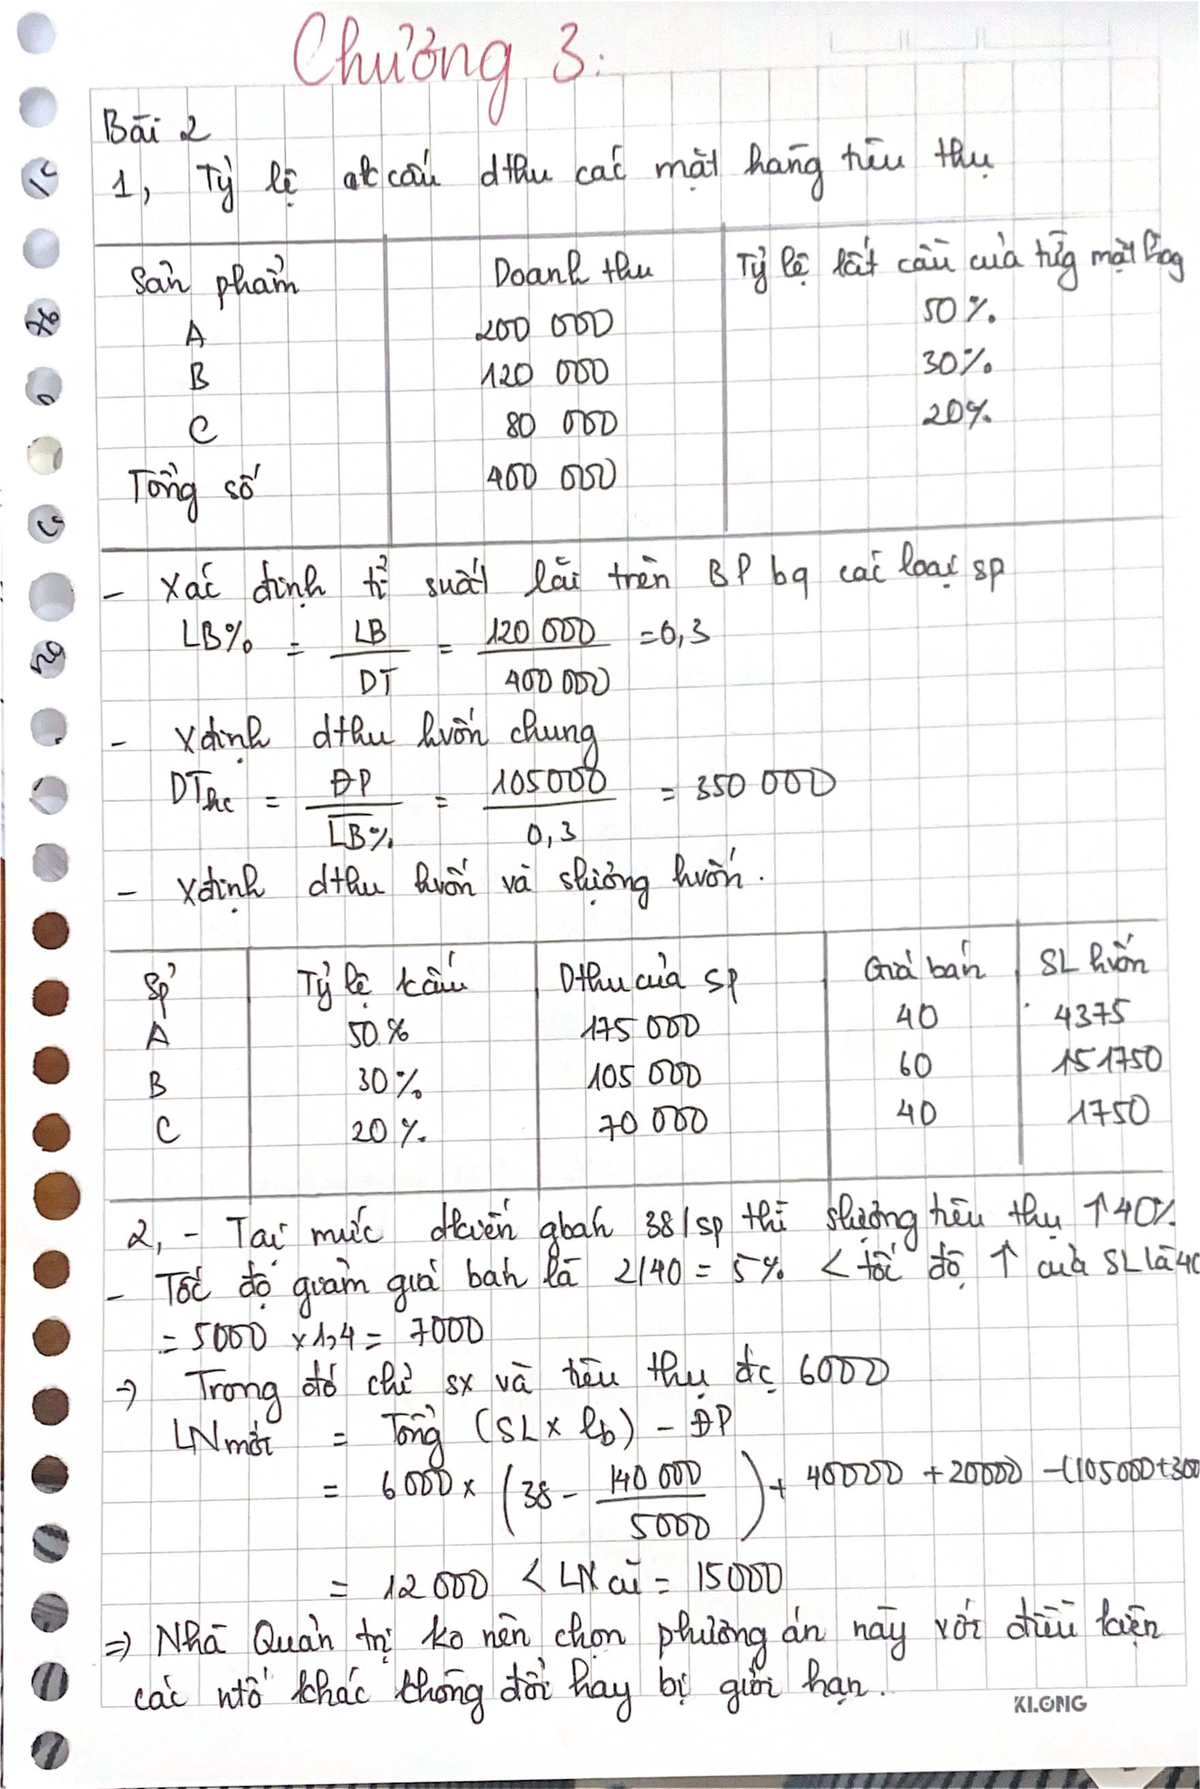 Chương 3:
Bài 2
1, Tỷ lệ kcấu dthu các mặt hàng tiêu thụ
Sản phẩm Doanh thu Tỷ lệ kết cấu của từg mặt hàg
A 200 000 50%
B 120 000 30%
C 80 000 20%
Tổng số 400 000
- Xác định tỉ suất lãi trên BP bq các loại sp
LB% = LB / DT = 120 000 / 400 000 = 0,3
- Xđịnh dthu hvốn chung
DThc = ĐP / LB% = 105000 / 0,3 = 350 000
- Xđịnh dthu hvốn và slượng hvốn.
Sp Tỷ lệ kcấu Dthu của sp Giá bán SL hvốn
A 50% 175 000 40 4375
B 30% 105 000 60 151750
C 20% 70 000 40 1750
2, - Tại mức gbán 38/sp thì slượng tiêu thụ ↑40%
- Tốc độ giảm giá bán là 2/40 = 5% < tốc độ ↑ của SL là 40
= 5000 x 1,4 = 7000
→ Trong đó chỉ sx và tiêu thụ đc 6000
LN mới = Tổng (SL x lb) - ĐP
= 6000 x (38 - 140 000 / 5000) + 40000 + 20000 - (105000+300
= 12 000 < LN cũ = 15000
=> Nhà Quản trị ko nên chọn phương án này với điều kiện
các ntố khác không đổi hay bị giới hạn.
KLONG